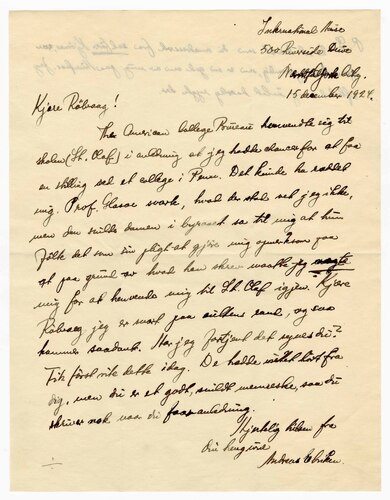 International House
500 Riverside Drive
New York City
15 desember 1924.
Kjære Rölvaag!
The American College Bureau henvendte sig til
skolen (St. Olaf) i anledning at jeg hadde chance for at faa
en stilling ved et college i Penn. Det kunde ha reddet
mig. Prof. svarte, hvad der stod vet jeg ikke,
men den snille damen i byraaet sa til mig at hun
fölte det som sin pligt at gjöre mig opmerksom paa
at paa grund av hvad han skrev maatte jeg
mig for at henvende mig til St. Olaf igjen. Kjære
Rölvaag, jeg er snart paa sand, og saa
kommer saadant. Har jeg fortjent det synes du?
Fik först vite dette idag. De hadde hört fra
dig, men du er et godt, snildt menneske, saa du
skriver nok naar du faar anledning.
Hjertelig hilsen fra
din hengivne
Andreas